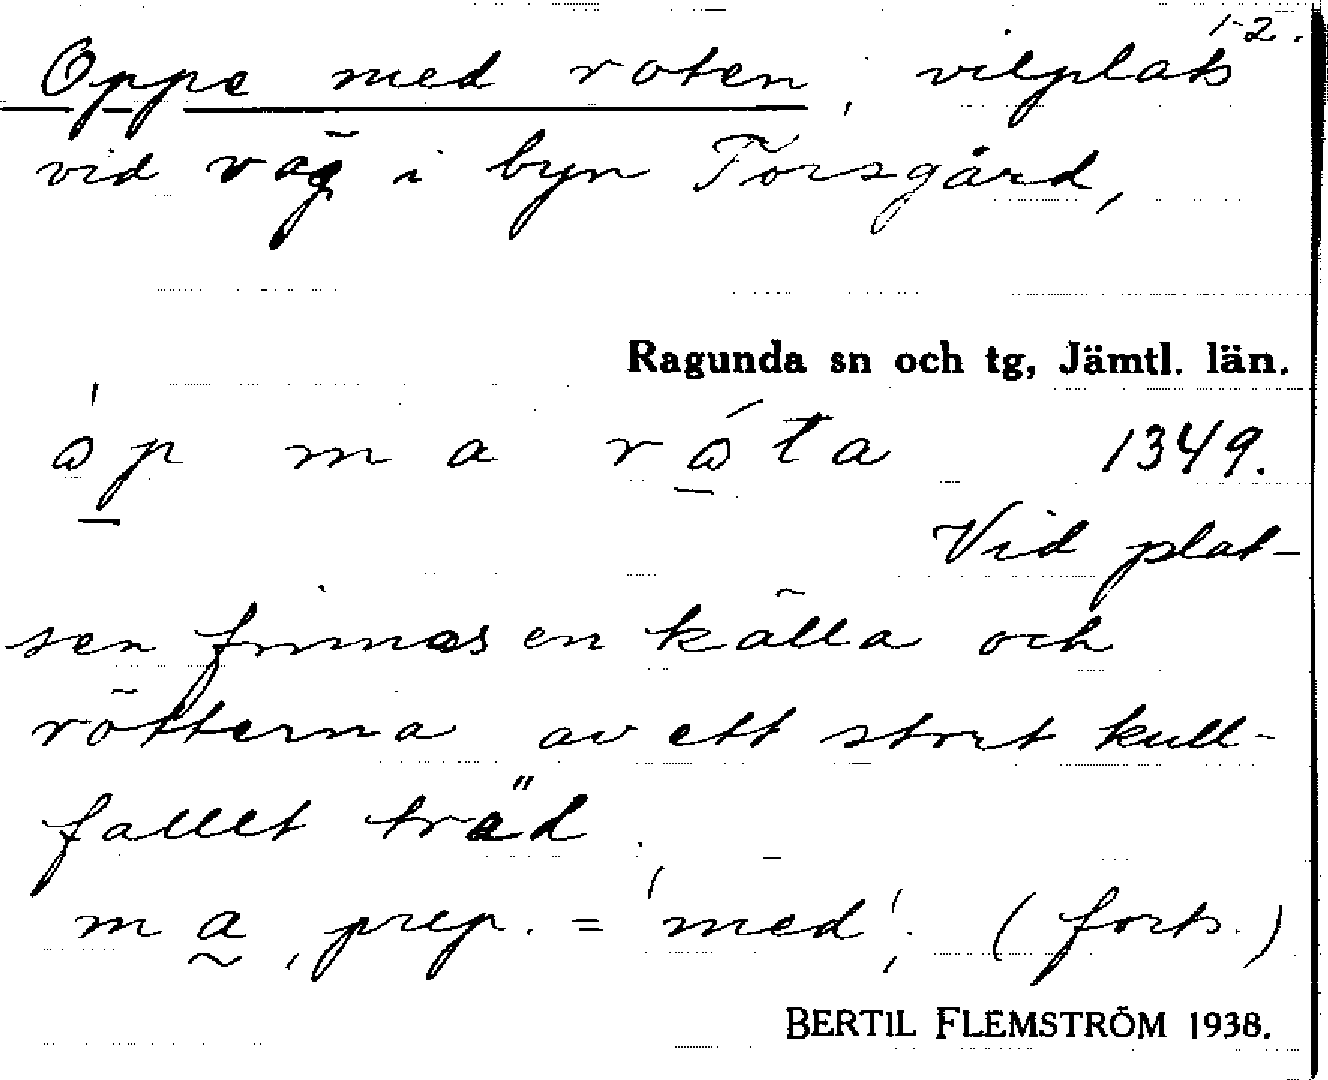 1-2.
Oppe med roten, vilplats
vid väg i byn Torsgård,
Ragunda sn och tg, Jämtl. län.
m a 1349.
Vid plat-
sen finnes en källa och
rötterna av ett stort kull-
fallet träd.
ma, prep. = 'med'. (forts.)
BERTIL FLEMSTRÖM 1938.